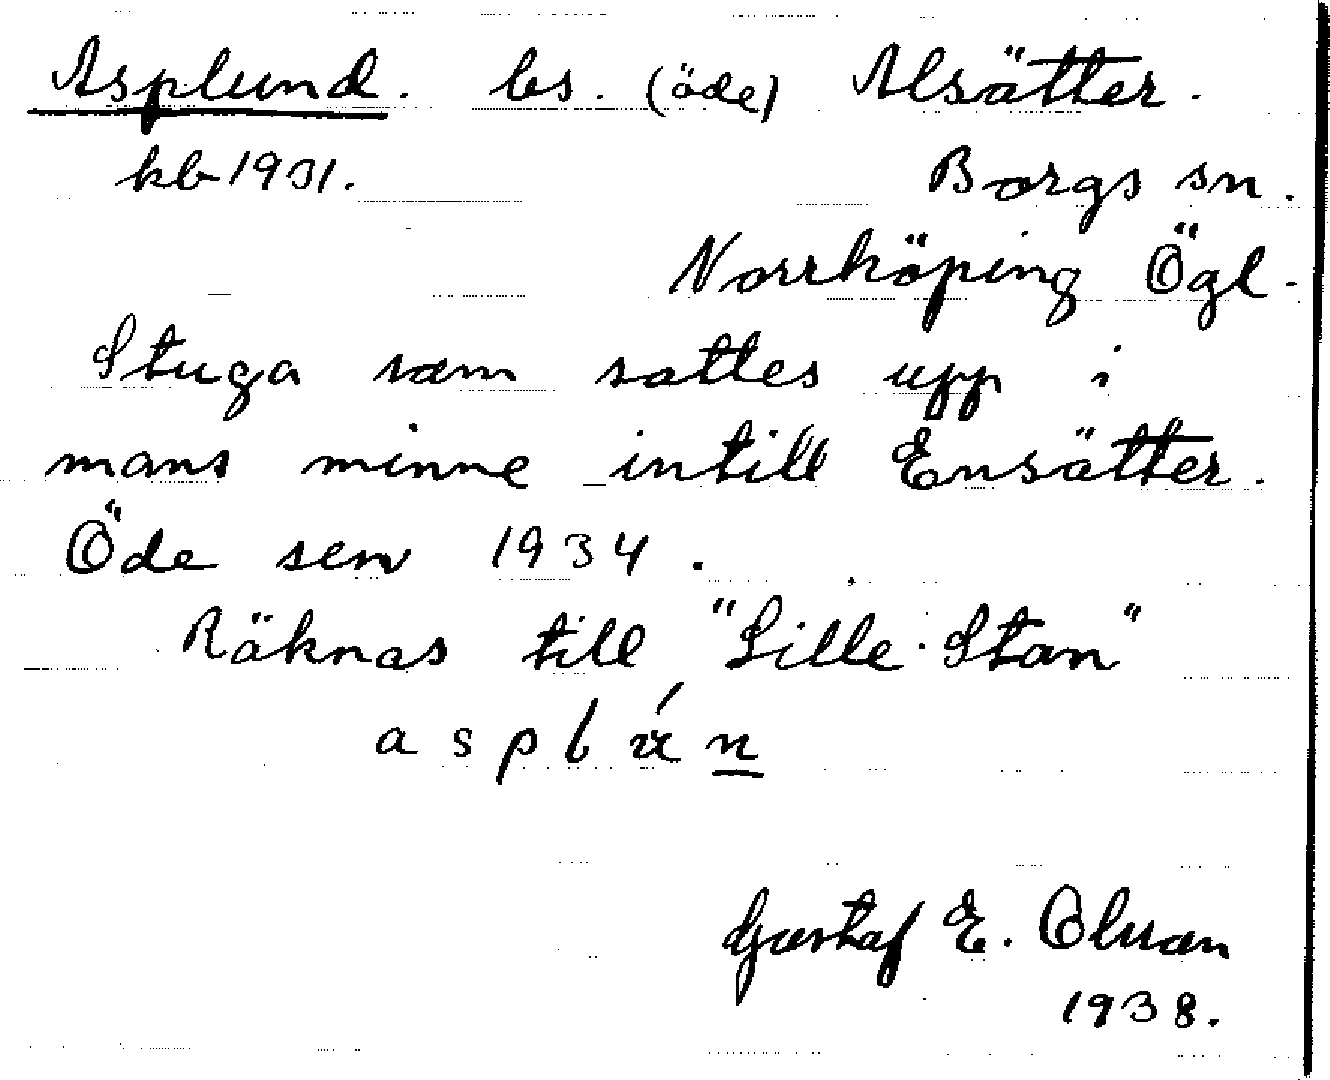 Asplund. bs. (öde) Alsätter.
kb 1931. Borgs sn.
Norrköping Ögl.
Stuga som sattes upp i
mans minne intill Ensätter.
Öde sen 1934.
Räknas till "Lille-Stan"
a s p l
Gustaf E. Olsson
1938.